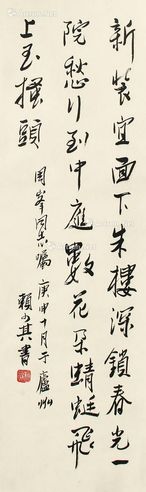 新裝宜面下朱樓深鎖春光一
院愁行到中庭數花朵蜻蜓飛
上玉搔頭
周峯同志囑 庚申十月于廬州
賴少其書